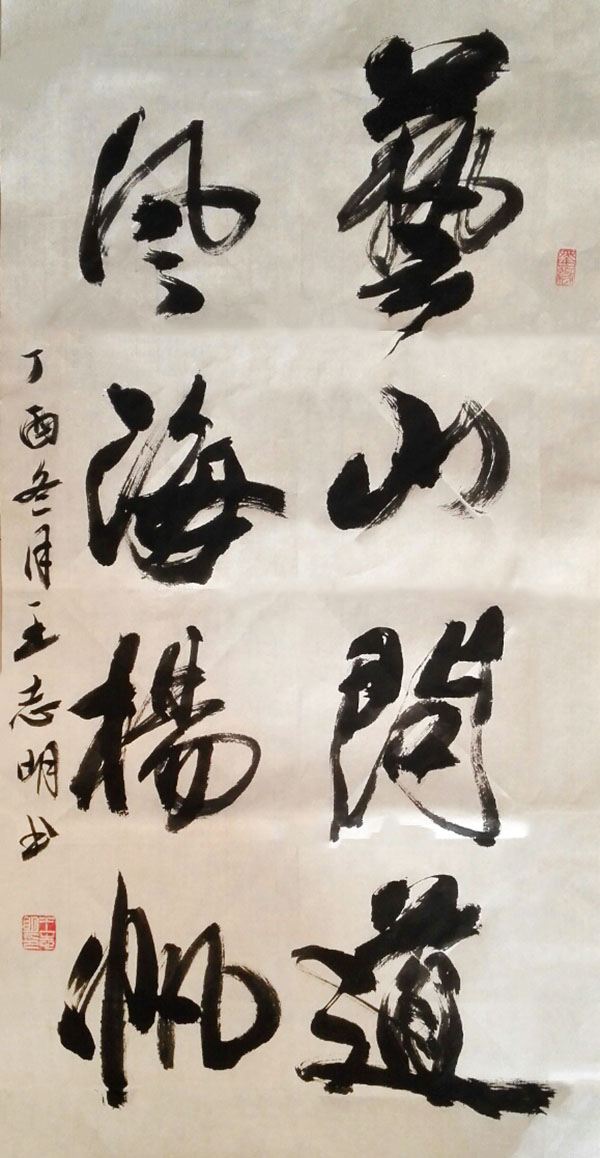 藝山問道
风海楊帆
丁酉冬月王志明书